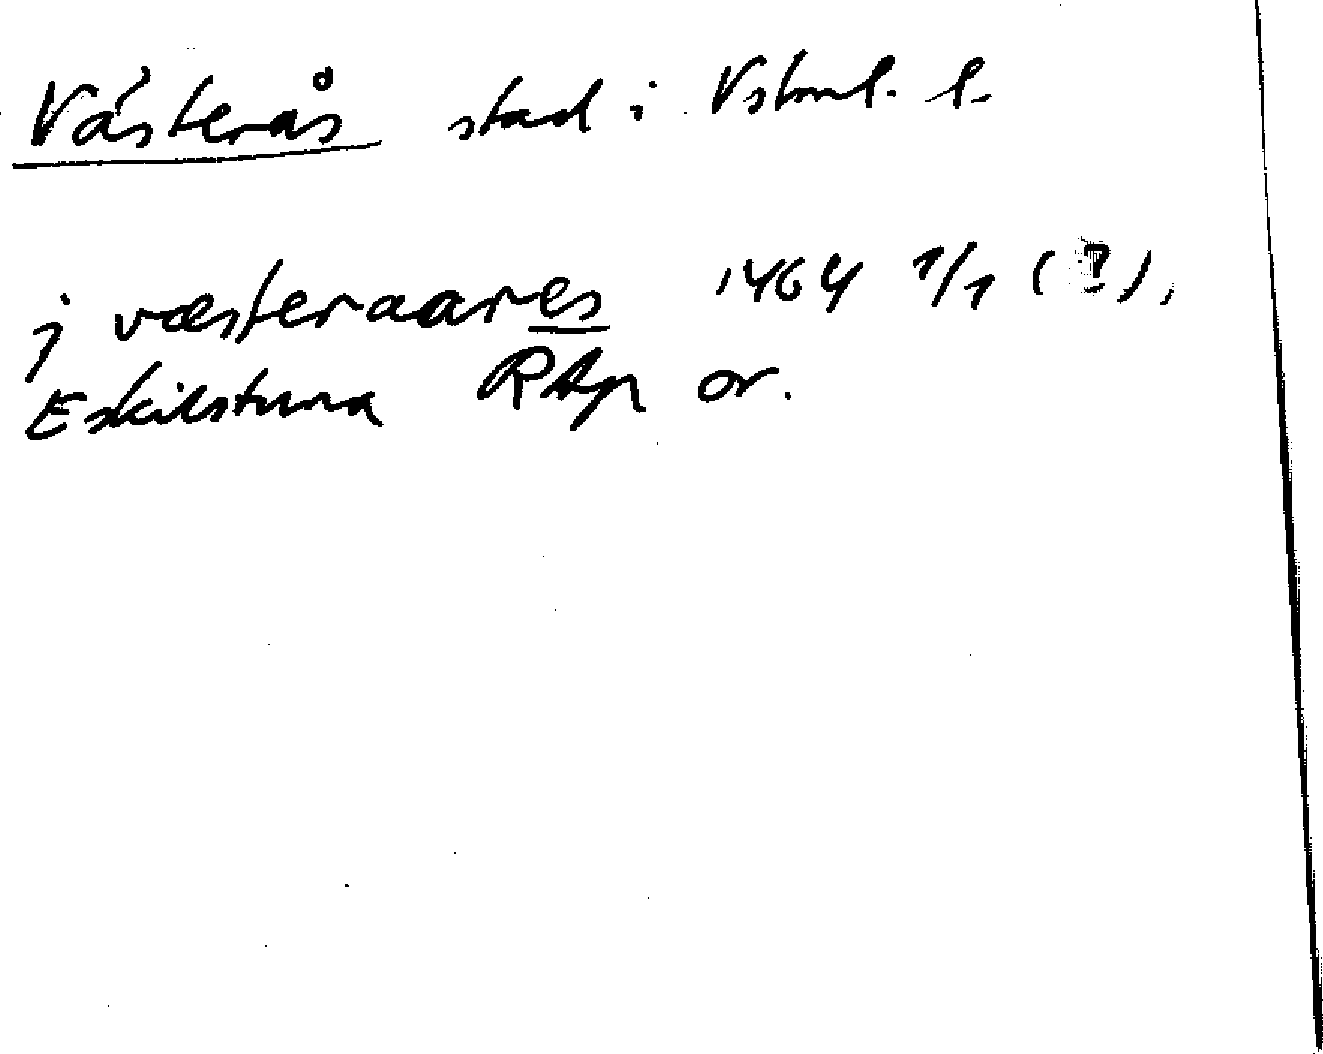 Västerås stad i Vstml. l.
j væsteraares 1464 1/1 (?),
Eskilstuna RAp or.